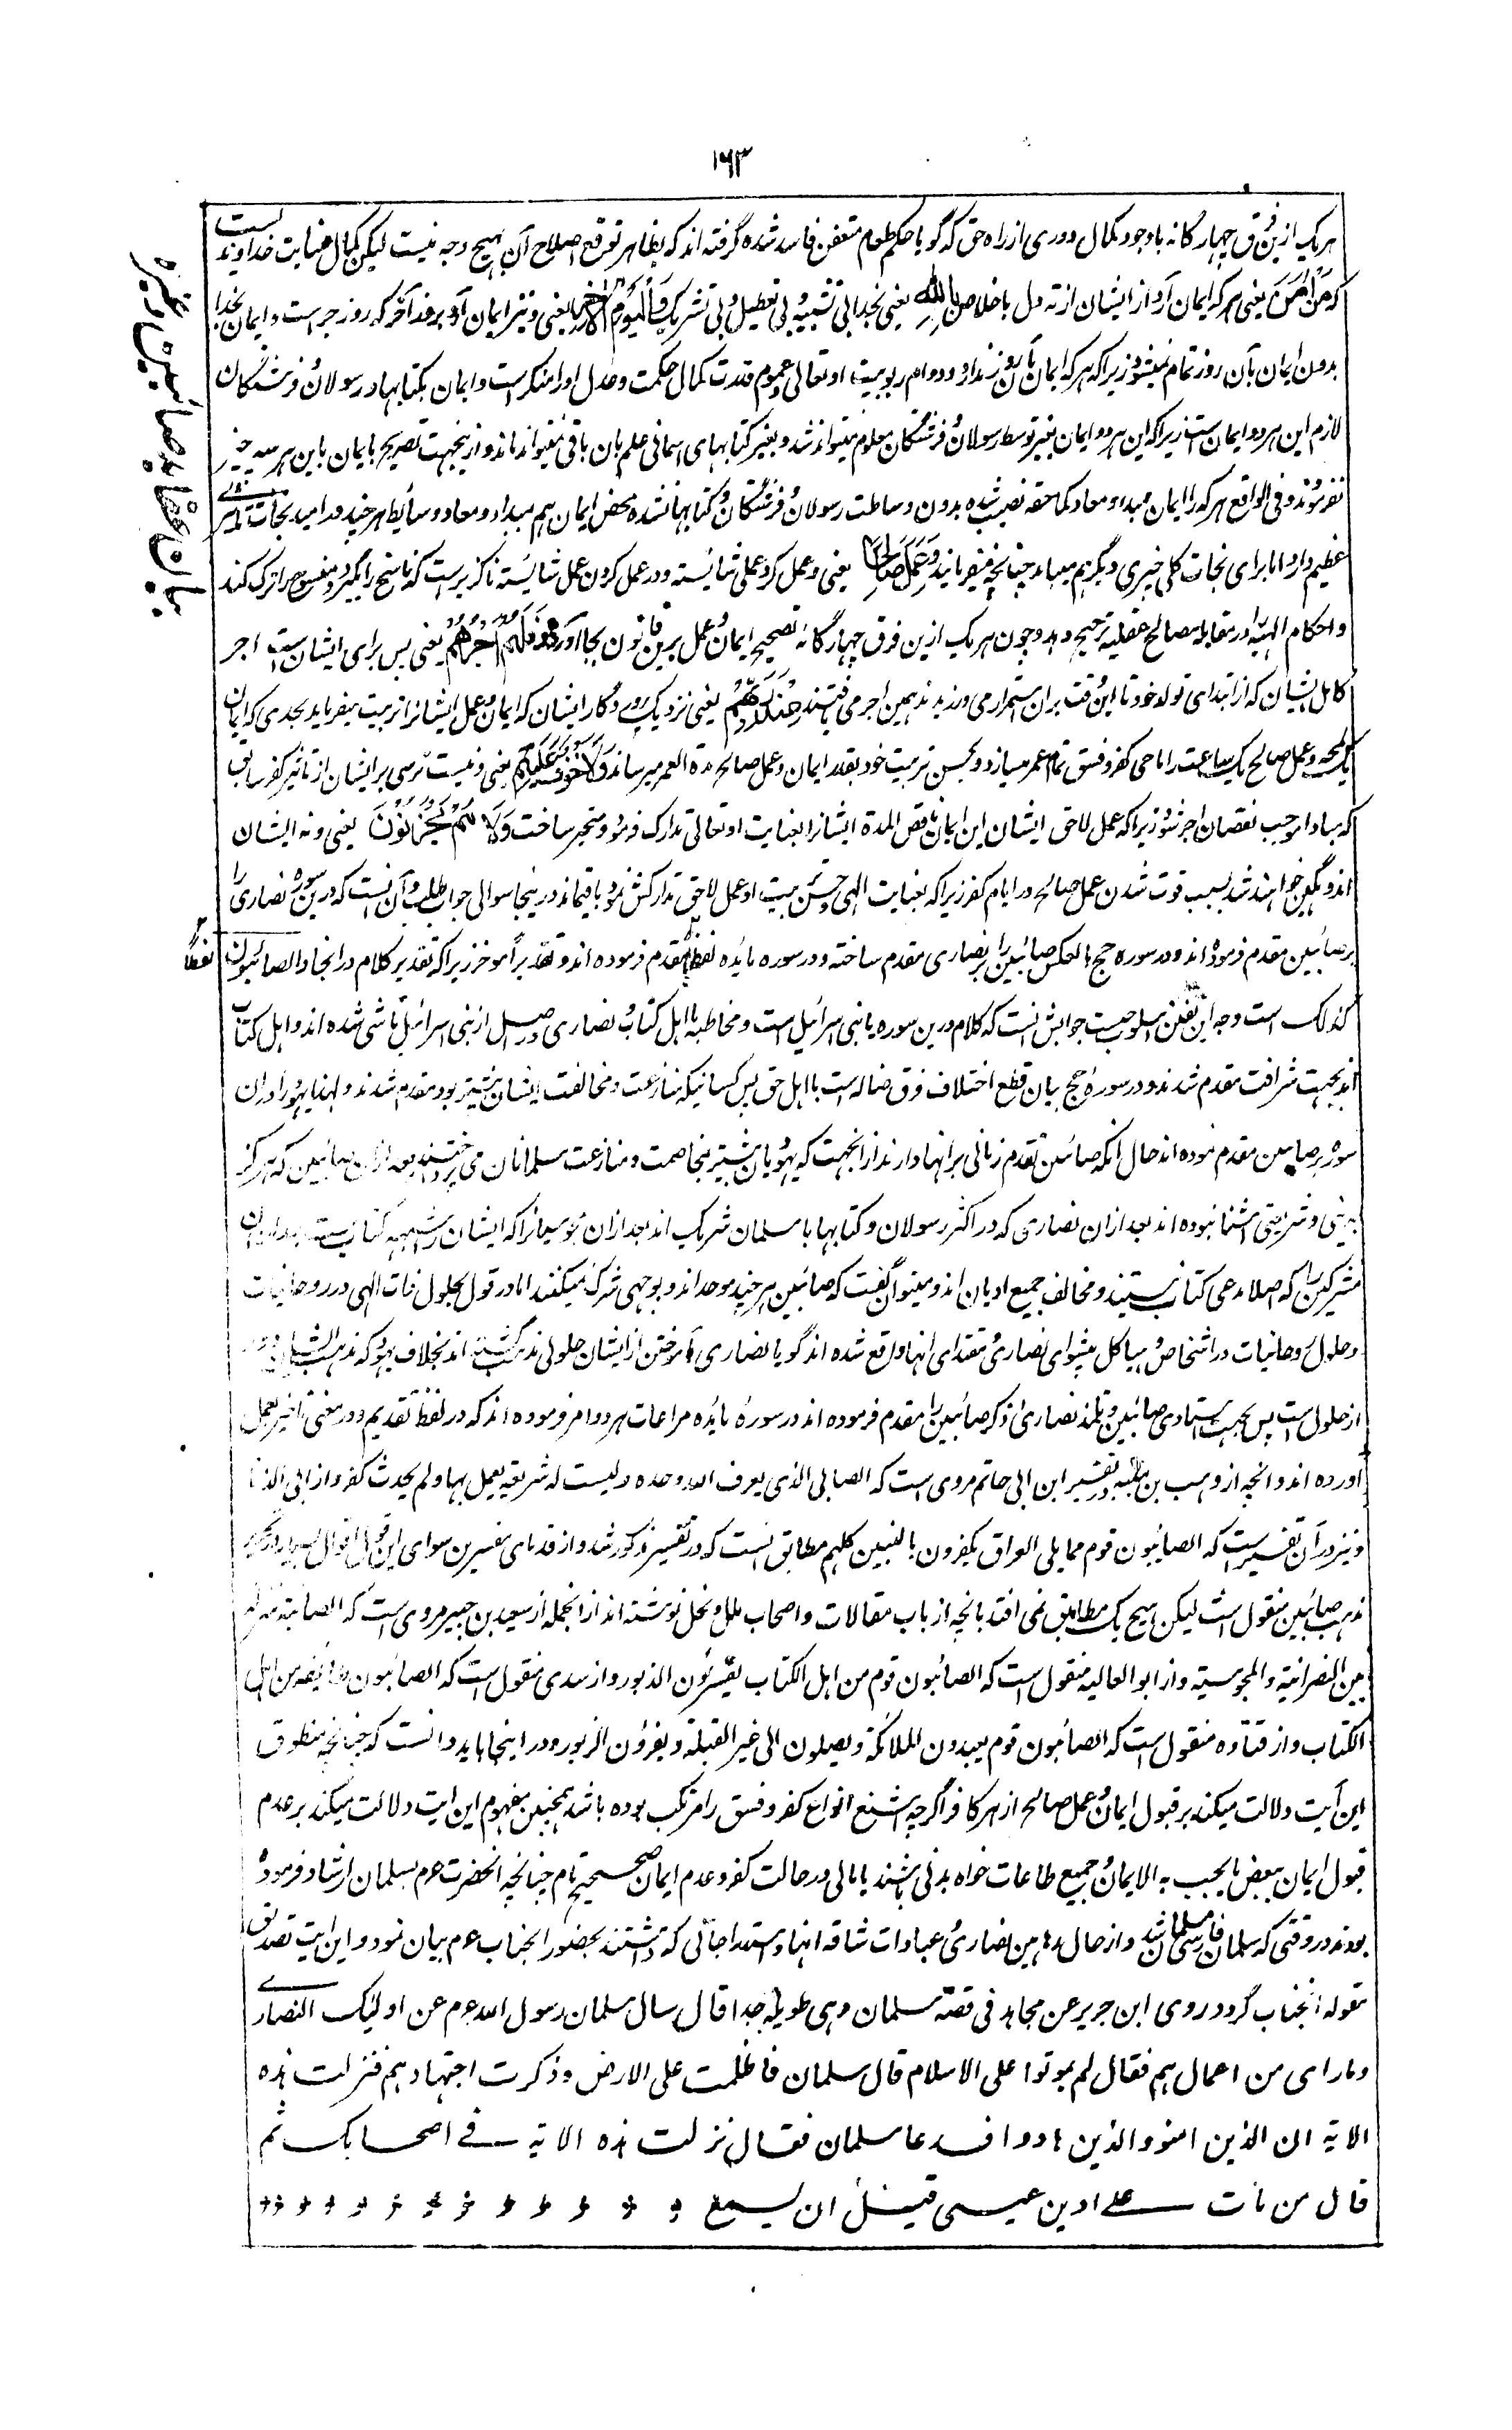 ۱۶۳
هر یک ازین فرق چهارگانه با وجود کمال دوری از راه حق که گویا حکم طعام متعفن فاسد شده گرفته اند که بظاهر توقع اصلاح آن هیچ وجه نیست لیکن کمال عنایت خداوندیست
که مَنْ اٰمَنَ یعنی هر که ایمان آرد از ایشان از ته دل باخلاص بِاللّٰهِ یعنی بخدا بی تشبیه و بی تعطیل و بی تشریک وَالْیَوْمِ الْاٰخِرِ یعنی و نیز ایمان آرد بروز آخر که روز جزاست و ایمان بخدا
بدون ایمان بآن روز تمام نمیشود زیرا که هر که ایمان بآن روز ندارد و دوام ربوبیت او تعالی و عموم قدرت کمال حکمت و عدل او را منکر است و ایمان بکتابها و رسولان و فرشتگان
لازم این هر دو ایمان است زیرا که این هر دو ایمان بغیر توسط رسولان و فرشتگان معلوم نمیتواند شد و بغیر کتابهای اسمانی علم بان باقی نمیتواند ماند و ازینجهت تصریح بایمان باین هر سه چیز
نفرمودند و فی الواقع هر که را ایمان مبدء و معاد کما حقه نصیب شده بدون وساطت رسولان و فرشتگان و کتابها نشده محض ایمان هم مبداء و معاد و وسائط هر چند در امید نجات تاثیری
عظیم دارد اما برای نجات کلی چیزی دیگر هم میباید چنانچه میفرمایند وَعَمِلَ صَالِحًا یعنی و عمل کرد عملی شائسته و در عمل کردن عمل شائسته ناگزیر است که ناسخ را بگیرد و منسوخ را ترک کند
و احکام الهیه را در مقابله مصالح عقلیه ترجیح دهد و چون هر یک ازین فرق چهارگانه تصحیح ایمان و عمل برین قانون بجا آورد فَلَهُمْ اَجْرُهُمْ یعنی پس برای ایشان است اجر
کامل ایشان که از ابتدای تولد خود تا این وقت بران استمرار می ورزیدند همین اجر می یافتند عِنْدَ رَبِّهِمْ یعنی نزدیک پروردگار ایشان که ایمان و عمل ایشانرا تربیت میفرماید بحدی که ایمان
یک لمحه و عمل صالح یک ساعت را ماحی کفر و فسق تمام عمر میسازد و بحسن تربیت خود بقدر ایمان و عمل صالح مدة العمر میرساند وَلَا خَوْفٌ عَلَیْهِمْ یعنی و نیست ترسی بر ایشان از تاثیر کفر سابق
که مبادا موجب نقصان اجر شود زیرا که عمل لاحق ایشان این ایمان ناقص المدة ایشانرا بعنایت او تعالی تدارک فرمود و منجبر ساخت وَلَا هُمْ یَحْزَنُوْنَ یعنی و نه ایشان
اندوهگین خواهند شد بسبب فوت شدن عمل صالح در ایام کفر زیرا که بعنایت الهی و حسن تربیت او عمل لاحق تدارکش نمود باقیماند درینجا سوالی جواب طلب و آن اینست که درین سوره نصاری را
بر صائبین مقدم فرموده اند و در سوره حج بالعکس صائبین را بر نصاری مقدم ساخته و در سوره مائده لفظاً مقدم فرموده اند و تقدیراً موخر زیرا که تقدیر کلام در انجا والصائبون
کذلک است وجه این تفنن اسلوب چیست جوابش اینست که کلام درین سوره با بنی اسرائیل است و مخاطبه با اهل کتاب و نصاری در اصل از بنی اسرائیل ناشی شده اند و اهل کتاب
اند بجهت شرافت مقدم شدند و در سوره حج بیان قطع اختلاف فرق ضاله است با اهل حق پس کسانیکه منازعت و مخالفت ایشان بیشتر بود مقدم شدند و لهذا یهود را در ان
سوره بر صابئین مقدم نموده اند حال انکه صائبین تقدم زمانی بر انها دارند از انجهت که یهودیان بیشتر بمخاصمت و منازعت مسلمانان می پرداختند بعد ازان صائبین که هرگز
بدینی و شریعتی اشنا نبوده اند بعد ازان نصاری که در اکثر رسولان و کتابها با مسلمان شریک اند بعد ازان مجوسیان را که ایشان را شبهه کتاب است بعد ازان
مشرکین را که اصلا مدعی کتاب نیستند و مخالف جمیع ادیان اند و میتوان گفت که صائبین هر چند موحد اند و بوجهی شرک نمیکنند اما در قول بحلول ذات الهی در روحانیات
و حلول روحانیات در اشخاص و هیاکل پیشوای نصاری و مقتدای انها واقع شده اند گویا نصاری آموختن از ایشان حلولی مذهب گشته اند بخلاف یهود که مذهب ایشان
از حلول است پس بجهت استادی صائبین و تلمذ نصاری ذکر صائبین را مقدم فرموده اند در سورۀ مائده مراعات هر دو امر فرموده اند که در لفظ تقدیم و در معنی تاخیر بعمل
اورده اند و انچه از وهب بن منبه در تفسیر ابن ابی حاتم مروی است که الصابی الذی یعرف الله وحده و لیست له شریعة یعمل بها و لم یحدث کفرا و از ابی الزناد
و نیز در آن تفسیر است که الصائبون قوم مما یلی العراق یکفرون بالنبیین کلهم مطابق اینست که در تفسیر مذکور شد و از قدمای مفسرین سوای این قول اقوال بسیار در تحریر
مذهب صائبین منقول است لیکن هیچ یک مطابق نمی افتد بانچه ارباب مقالات و اصحاب ملل و نحل نوشته اند از انجمله از سعید بن جبیر مروی است که الصابئة منزلة
بین النصرانیة و المجوسیة و از ابو العالیه منقول است که الصائبون قوم من اهل الکتاب یقرئون الزبور و از سدی منقول است که الصائبون طائفة من اهل
الکتاب و از قتاده منقول است که الصائبون قوم یعبدون الملائکة و یصلون الی غیر القبلة و یقرؤن الزبور و در اینجا باید دانست که چنانچه منطوق
این آیت دلالت میکند بر قبول ایمان و عمل صالح از هر کافر اگرچه اشنع انواع کفر و فسق را مرتکب بوده باشد همچنین مفهوم این ایت دلالت میکند بر عدم
قبول ایمان ببعض ما یجب به الایمان و جمیع طاعات خواه بدنی باشند یا مالی در حالت کفر و عدم ایمان صحیح تام چنانچه انحضرت صلعم بسلمان ارشاد فرموده
بودند در وقتی که سلمان فارسی مسلمان شد و از حال رهابین نصاری و عبادات شاقه انها و استدراجاتی که داشتند بحضور انجناب صلعم بیان نمود و این ایت تصدیق
مقوله انجناب گردد روی ابن جریر عن مجاهد فی قصة سلمان و هی طویلة جدا قال سال سلمان رسول الله صلعم عن اولئک النصاری
و ما رای من اعمالهم فقال لم یموتوا علی الاسلام قال سلمان فاظلمت علی الارض و ذکرت اجتهادهم فنزلت هذه
الایة ان الذین امنو والذین هادوا فدعا سلمان فقال نزلت هذه الایة فی اصحابک ثم
قال من مات علی دین عیسی قبل ان یسمع
بیان عقاید صائبین وغیره
لفظاً